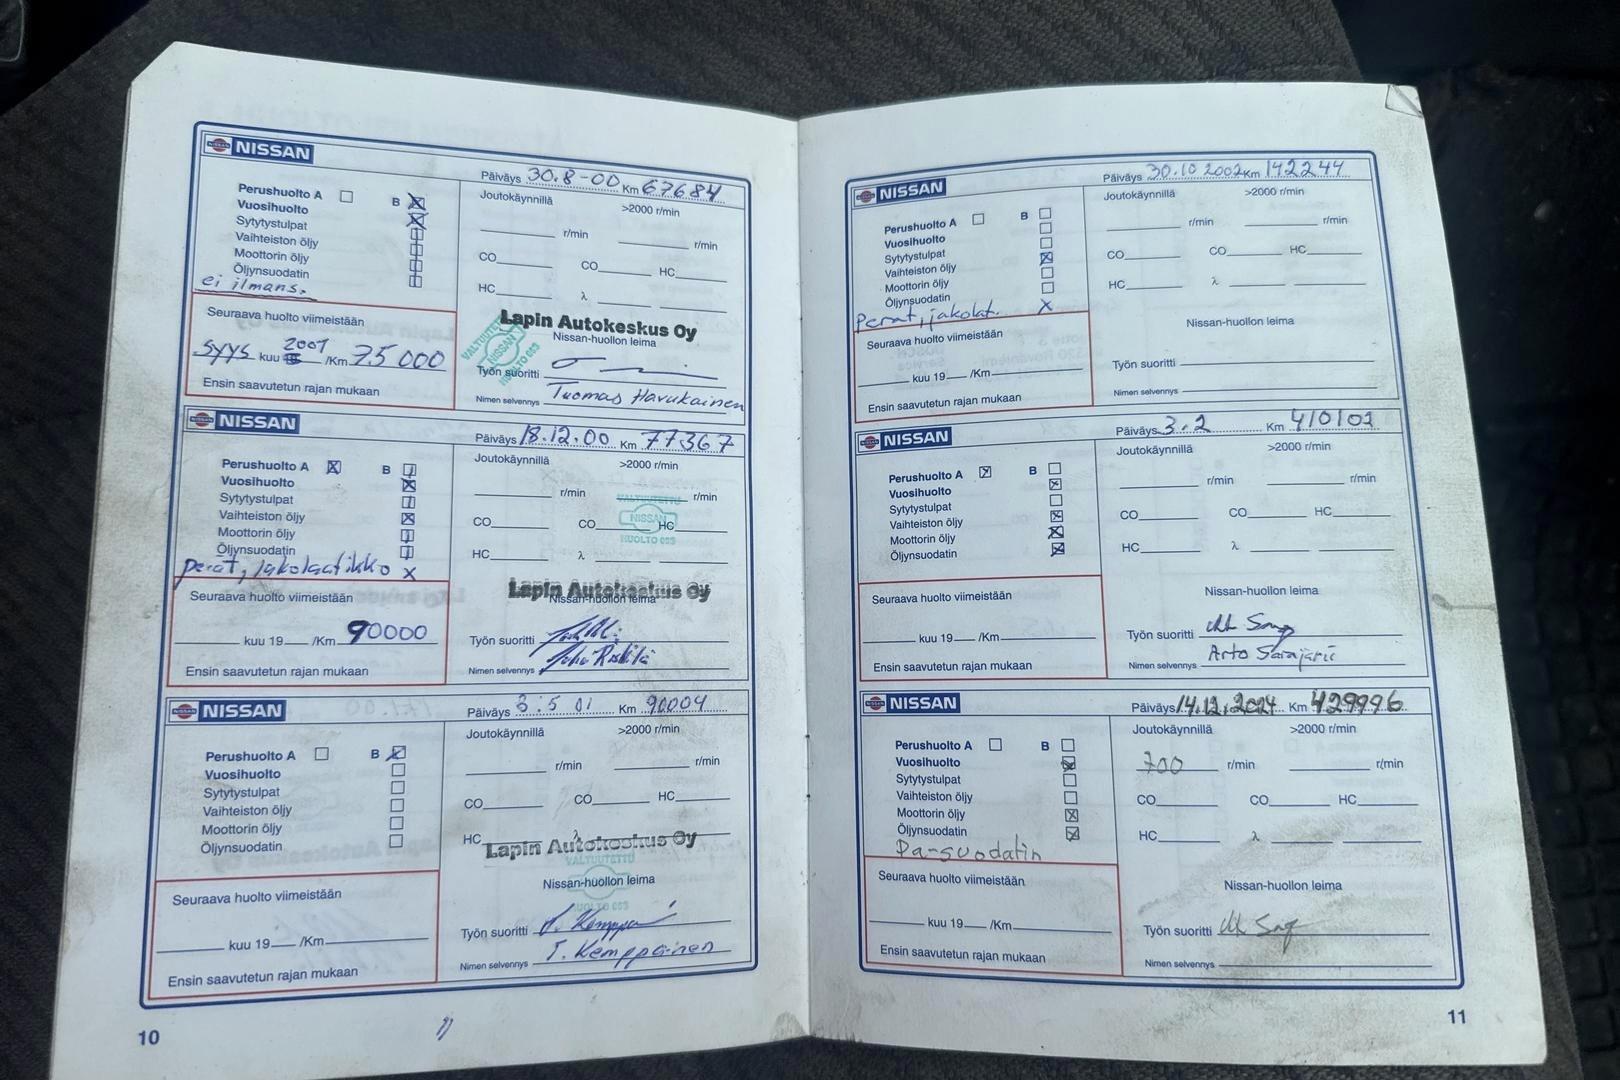 NISSAN
Päiväys 30.8-00 Km 67684
Perushuolto A B
Vuosihuolto
Sytytystulpat
Vaihteiston öljy
Moottorin öljy
Öljynsuodatin
ei ilmans.
Joutokäynnillä >2000 r/min
r/min r/min
CO CO HC
HC λ
Seuraava huolto viimeistään
syys kuu 2001 /Km 75000
Ensin saavutetun rajan mukaan
Lapin Autokeskus Oy
VALTUUTETTU NISSAN HUOLTO 053
Nissan-huollon leima
Työn suoritti
Nimen selvennys Tuomas Havukainen
NISSAN
Päiväys 18.12.00 Km 77367
Perushuolto A B
Vuosihuolto
Sytytystulpat
Vaihteiston öljy
Moottorin öljy
Öljynsuodatin
perät, jakolaatikko x
Joutokäynnillä >2000 r/min
r/min r/min
CO CO HC
HC λ
VALTUUTETTU
NISSAN
HUOLTO 053
Seuraava huolto viimeistään
kuu 19 /Km 90000
Ensin saavutetun rajan mukaan
Lapin Autokeskus Oy
Nissan-huollon leima
Työn suoritti
Nimen selvennys
NISSAN
Päiväys 3.5 01 Km 90004
Perushuolto A B
Vuosihuolto
Sytytystulpat
Vaihteiston öljy
Moottorin öljy
Öljynsuodatin
Joutokäynnillä >2000 r/min
r/min r/min
CO CO HC
HC λ
Lapin Autokeskus Oy
VALTUUTETTU
HUOLTO 053
Seuraava huolto viimeistään
kuu 19 /Km
Ensin saavutetun rajan mukaan
Nissan-huollon leima
Työn suoritti
Nimen selvennys T. Kemppainen
10
NISSAN
Päiväys 30.10 2002 Km 142244
Perushuolto A B
Vuosihuolto
Sytytystulpat
Vaihteiston öljy
Moottorin öljy
Öljynsuodatin
Perät, jakolat. X
Joutokäynnillä >2000 r/min
r/min r/min
CO CO HC
HC λ
Seuraava huolto viimeistään
kuu 19 /Km
Ensin saavutetun rajan mukaan
Nissan-huollon leima
Työn suoritti
Nimen selvennys
NISSAN
Päiväys 3.2 Km 410102
Perushuolto A B
Vuosihuolto
Sytytystulpat
Vaihteiston öljy
Moottorin öljy
Öljynsuodatin
Joutokäynnillä >2000 r/min
r/min r/min
CO CO HC
HC λ
Seuraava huolto viimeistään
kuu 19 /Km
Ensin saavutetun rajan mukaan
Nissan-huollon leima
Työn suoritti
Nimen selvennys Arto Sarajärvi
NISSAN
Päiväys 14.12.2024 Km 429996
Perushuolto A B
Vuosihuolto
Sytytystulpat
Vaihteiston öljy
Moottorin öljy
Öljynsuodatin
Pa-suodatin
Joutokäynnillä >2000 r/min
700 r/min r/min
CO CO HC
HC λ
Seuraava huolto viimeistään
kuu 19 /Km
Ensin saavutetun rajan mukaan
Nissan-huollon leima
Työn suoritti
Nimen selvennys
11